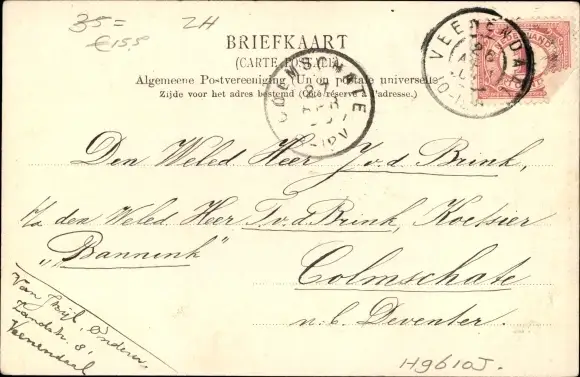 35= 2H
€155
BRIEFKAART
(CARTE POSTALE)
Algemeene Postvereeniging (Union postale universelle)
Zijde voor het adres bestemd (Côté réservé à l'adresse.)
VEENENDAAL
COLMSCHATE
Den Weled Heer J. v. d. Brink,
p/a den Weled. Heer T. v. d. Brink, Koetsier
„Bannink"
Colmschate
n. b. Deventer.
Van
Zandstr. 8,
Veenendaal
H9610J.